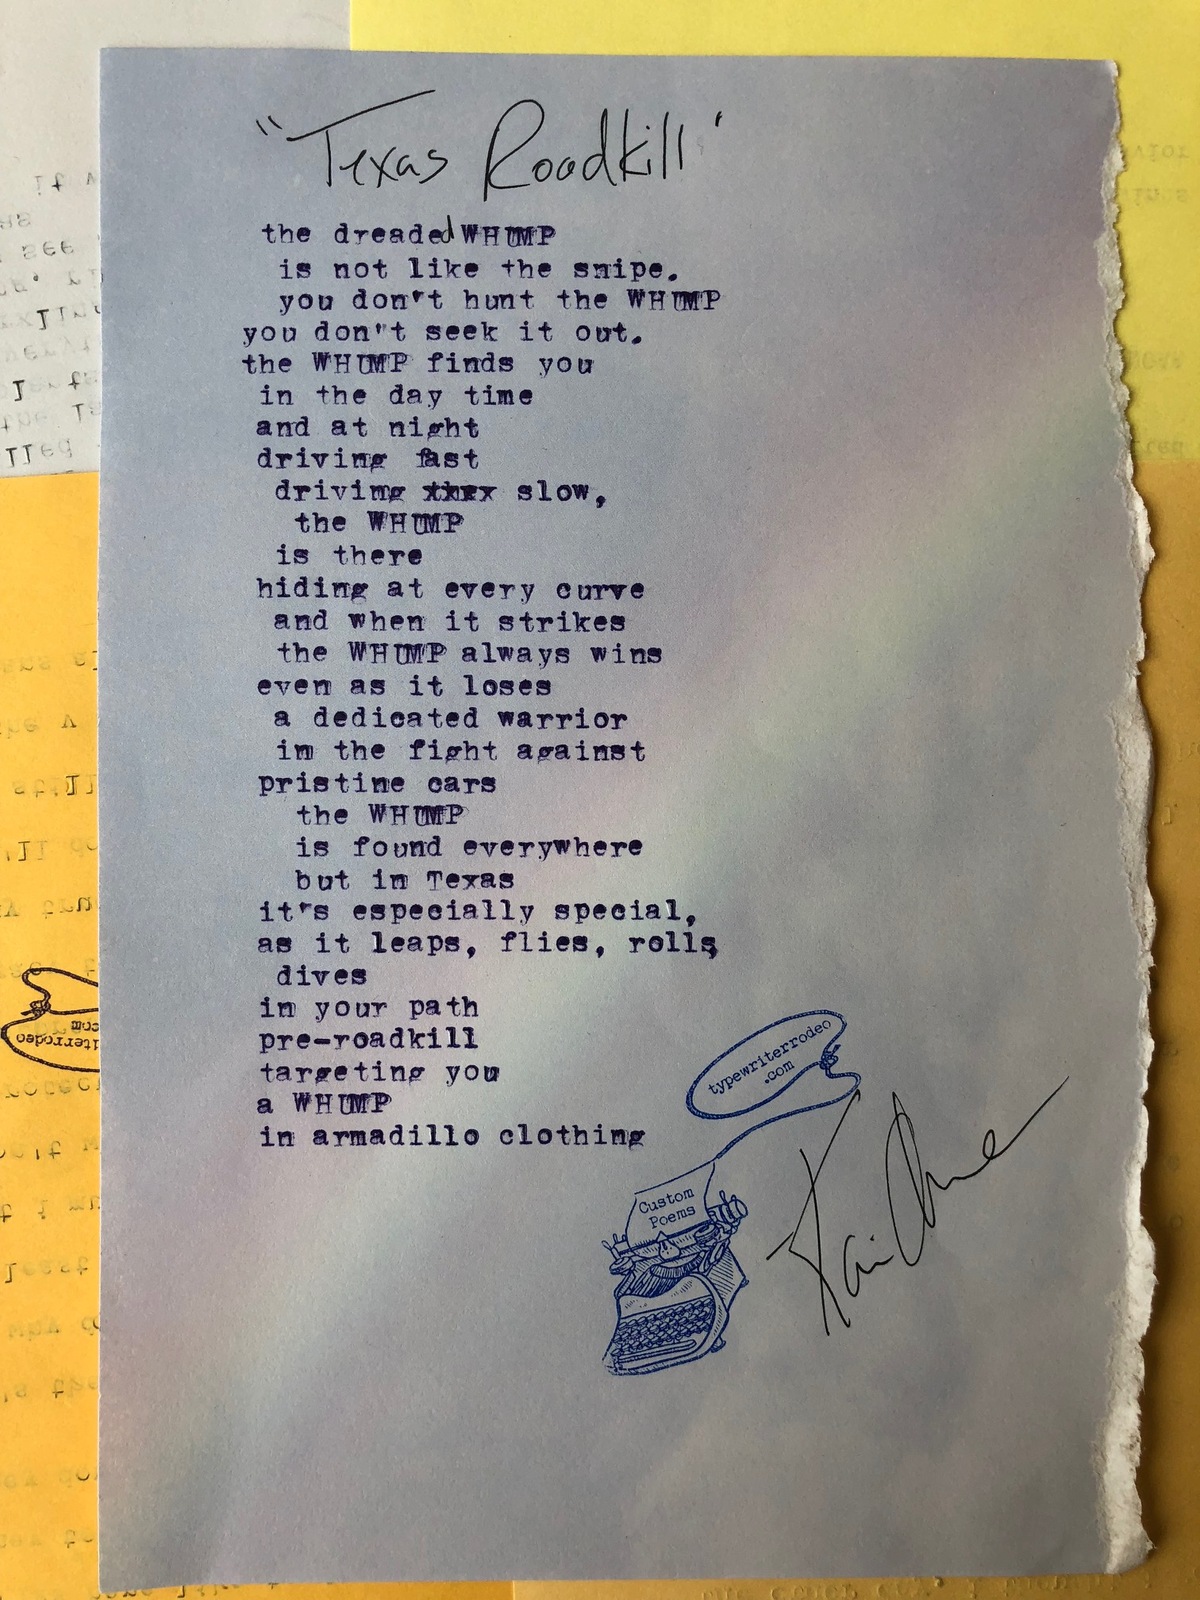 "Texas Roadkill"
the dreaded WHUMP
is not like the snipe.
you don't hunt the WHUMP
you don't seek it out.
the WHUMP finds you
in the day time
and at night
driving fast
driving slow,
the WHUMP
is there
hiding at every curve
and when it strikes
the WHUMP always wins
even as it loses
a dedicated warrior
in the fight against
pristine cars
the WHUMP
is found everywhere
but in Texas
it's especially special,
as it leaps, flies, rolls
dives
in your path
pre-roadkill
targeting you
a WHUMP
in armadillo clothing
typewriterrodeo
.com
Custom
Poems